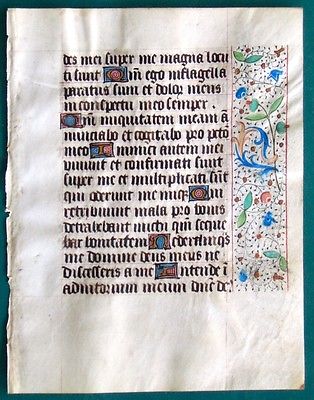 des mei super me magna locu
ti sunt Qm̄ ego in flagella
paratus sum et dolor meus
in conspectu meo semper.
Qm̄ iniquitatem meam ā
nunciabo et cogitabo pro pctō
meo Inimici autem mei
viuunt et confirmati sunt
super me et multiplicati sūt
qui oderunt me iniq̄ Qui
retribuunt mala pro bonis
detrahebant michi qm̄ seque
bar bonitatem Ne derelinq̄s
me domine deus meus ne
discesseris a me Intende ī
adiutorium meum dn̄e de